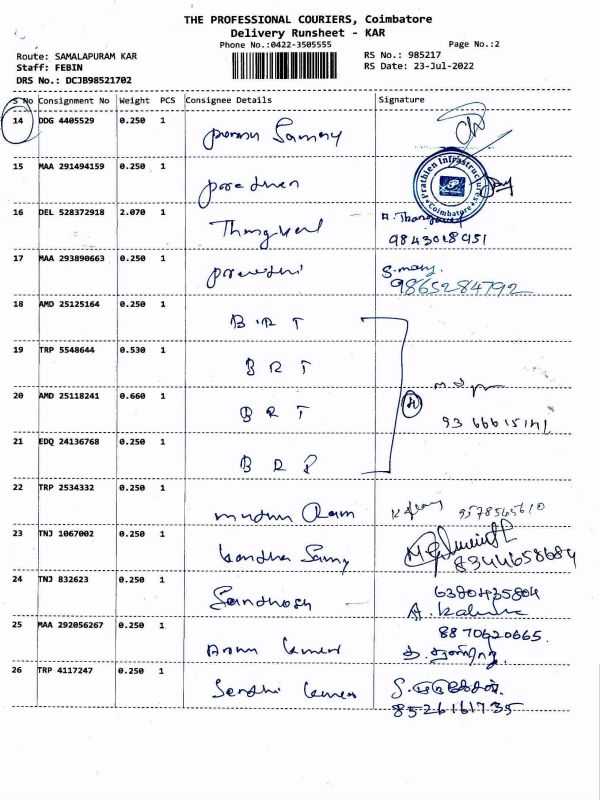 THE PROFESSIONAL COURIERS, Coimbatore
Delivery Runsheet - KAR
Phone No.:0422-3505555
Page No.:2
Route: SAMALAPURAM KAR
RS No.: 985217
Staff: FEBIN
RS Date: 23-Jul-2022
DRS No.: DCJB98521702
S No Consignment No Weight PCS Consignee Details Signature
14 DDG 4405529 0.250 1 Samy
15 MAA 291494159 0.250 1
Prathien Infrastructures
Coimbatore
16 DEL 528372918 2.070 1 Thangavel
9843018951
17 MAA 293890663 0.250 1 S. mary.
9865284792
18 AMD 25125164 0.250 1 B R T
19 TRP 5548644 0.530 1 B R T
20 AMD 25118241 0.660 1 B R T 4
93 66615141
21 EDQ 24136768 0.250 1 B R T
22 TRP 2534332 0.250 1 Ram 9578565610
23 TNJ 1067002 0.250 1 kandha Samy
8344658684
24 TNJ 832623 0.250 1 Santhosh 6380435804
25 MAA 292056267 0.250 1 Arun kumar 8870620665.
26 TRP 4117247 0.250 1 Senthil kumar
8526161735